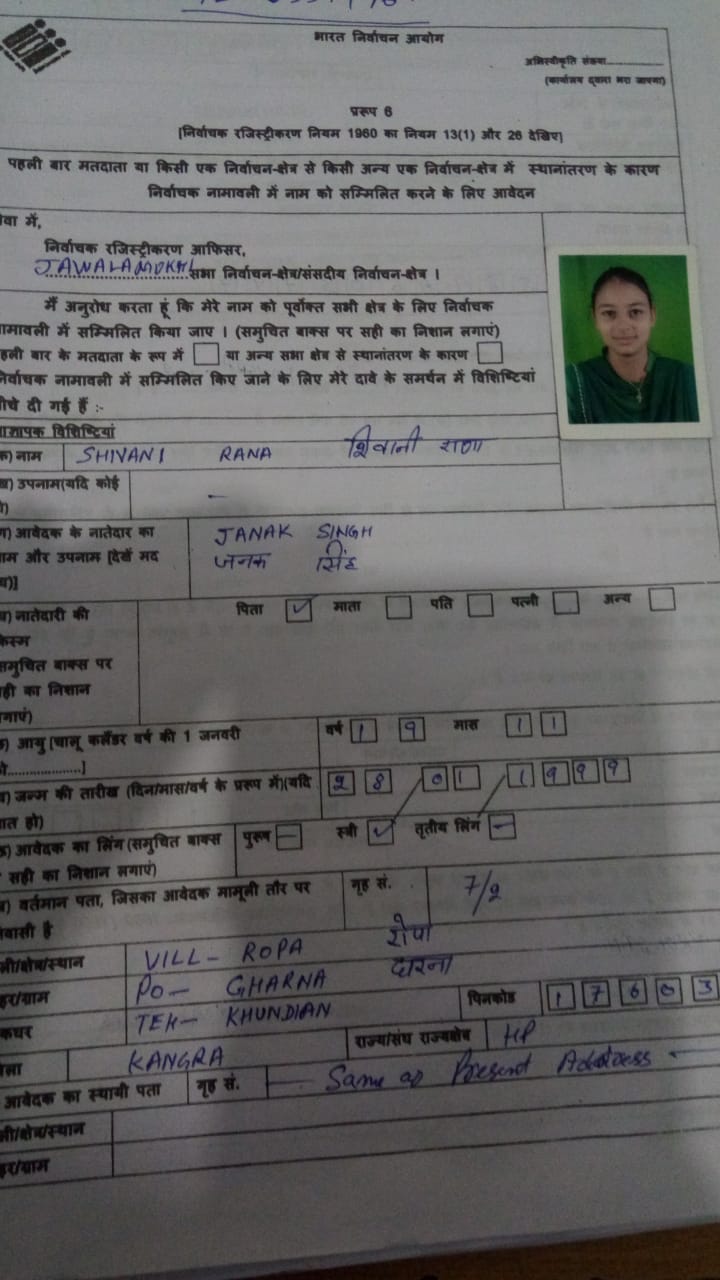 भारत निर्वाचन आयोग
अभिस्वीकृति संख्या..............
(कार्यालय द्वारा भरा जाएगा)
प्ररूप 6
[निर्वाचक रजिस्ट्रीकरण नियम 1960 का नियम 13(1) और 26 देखिए]
पहली बार मतदाता या किसी एक निर्वाचन-क्षेत्र से किसी अन्य एक निर्वाचन-क्षेत्र में स्थानांतरण के कारण
निर्वाचक नामावली में नाम को सम्मिलित करने के लिए आवेदन
सेवा में,
निर्वाचक रजिस्ट्रीकरण आफिसर,
JAWALAMUKHI सभा निर्वाचन-क्षेत्र/संसदीय निर्वाचन-क्षेत्र ।
मैं अनुरोध करता हूं कि मेरे नाम को पूर्वोक्त सभी क्षेत्र के लिए निर्वाचक
नामावली में सम्मिलित किया जाए । (समुचित बाक्स पर सही का निशान लगाएं)
पहली बार के मतदाता के रूप में या अन्य सभा क्षेत्र से स्थानांतरण के कारण
निर्वाचक नामावली में सम्मिलित किए जाने के लिए मेरे दावे के समर्थन में विशिष्टियां
नीचे दी गई हैं :-
विशिष्टियां
क) नाम SHIVANI RANA शिवानी राणा
ख) उपनाम(यदि कोई -
हो)
ग) आवेदक के नातेदार का JANAK SINGH
नाम और उपनाम [देखें मद जनक सिंह
घ)]
घ) नातेदारी की पिता ✓ माता पति पत्नी अन्य
किस्म
समुचित बाक्स पर
सही का निशान
लगाएं)
ङ) आयु [चालू कलैंडर वर्ष की 1 जनवरी वर्ष 1 9 मास 1 1
को....................]
च) जन्म की तारीख (दिन/मास/वर्ष के प्ररूप में)(यदि 28 / 01 / 1999
ज्ञात हो)
छ) आवेदक का लिंग (समुचित बाक्स पुरूष - स्त्री ✓ तृतीय लिंग -
सही का निशान लगाएं)
ज) वर्तमान पता, जिसका आवेदक मामूली तौर पर गृह सं. 7/2
निवासी है
गली/क्षेत्र/स्थान VILL- ROPA रोपा
शहर/ग्राम PO- GHARNA
डाकघर TEH- KHUNDIAN पिनकोड 1 7 6 0 3
जिला KANGRA राज्य/संघ राज्यक्षेत्र HP
आवेदक का स्थायी पता गृह सं. - Same as Present Address -
गली/क्षेत्र/स्थान
शहर/ग्राम